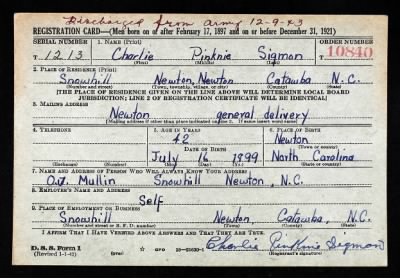 Discharged from army 12-9-43
REGISTRATION CARD—(Men born on or after February 17, 1897 and on or before December 31, 1921)
SERIAL NUMBER 1. NAME (Print) ORDER NUMBER
T 1213 Charlie Pinknie Sigmon T 10840
(First) (Middle) (Last)
2. PLACE OF RESIDENCE (Print)
Snowhill Newton, Newton Catawba N.C.
(Number and street) (Town, township, village, or city) (County) (State)
[THE PLACE OF RESIDENCE GIVEN ON THE LINE ABOVE WILL DETERMINE LOCAL BOARD
JURISDICTION; LINE 2 OF REGISTRATION CERTIFICATE WILL BE IDENTICAL]
3. MAILING ADDRESS
Newton general delivery
(Mailing address if other than place indicated on line 2. If same insert word same)
4. TELEPHONE 5. AGE IN YEARS 6. PLACE OF BIRTH
42 Newton
DATE OF BIRTH (Town or county)
July 16 1899 North Carolina
(Exchange) (Number) (Mo.) (Day) (Yr.) (State or country)
7. NAME AND ADDRESS OF PERSON WHO WILL ALWAYS KNOW YOUR ADDRESS
Mullin Snowhill Newton, N.C.
8. EMPLOYER'S NAME AND ADDRESS
Self
9. PLACE OF EMPLOYMENT OR BUSINESS
Snowhill Newton, Catawba, N.C.
(Number and street or R. F. D. number) (Town) (County) (State)
I AFFIRM THAT I HAVE VERIFIED ABOVE ANSWERS AND THAT THEY ARE TRUE.
D. S. S. Form 1 Charlie Pinknie Sigmon
(Revised 1-1-42) GPO (Registrant's signature)